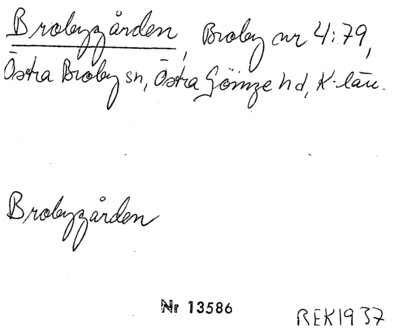 Brobygården, Broby nr 4:79,
Östra Broby sn, Östra Göinge hd, K-län.
Brobygården
Nr 13586
REK1937